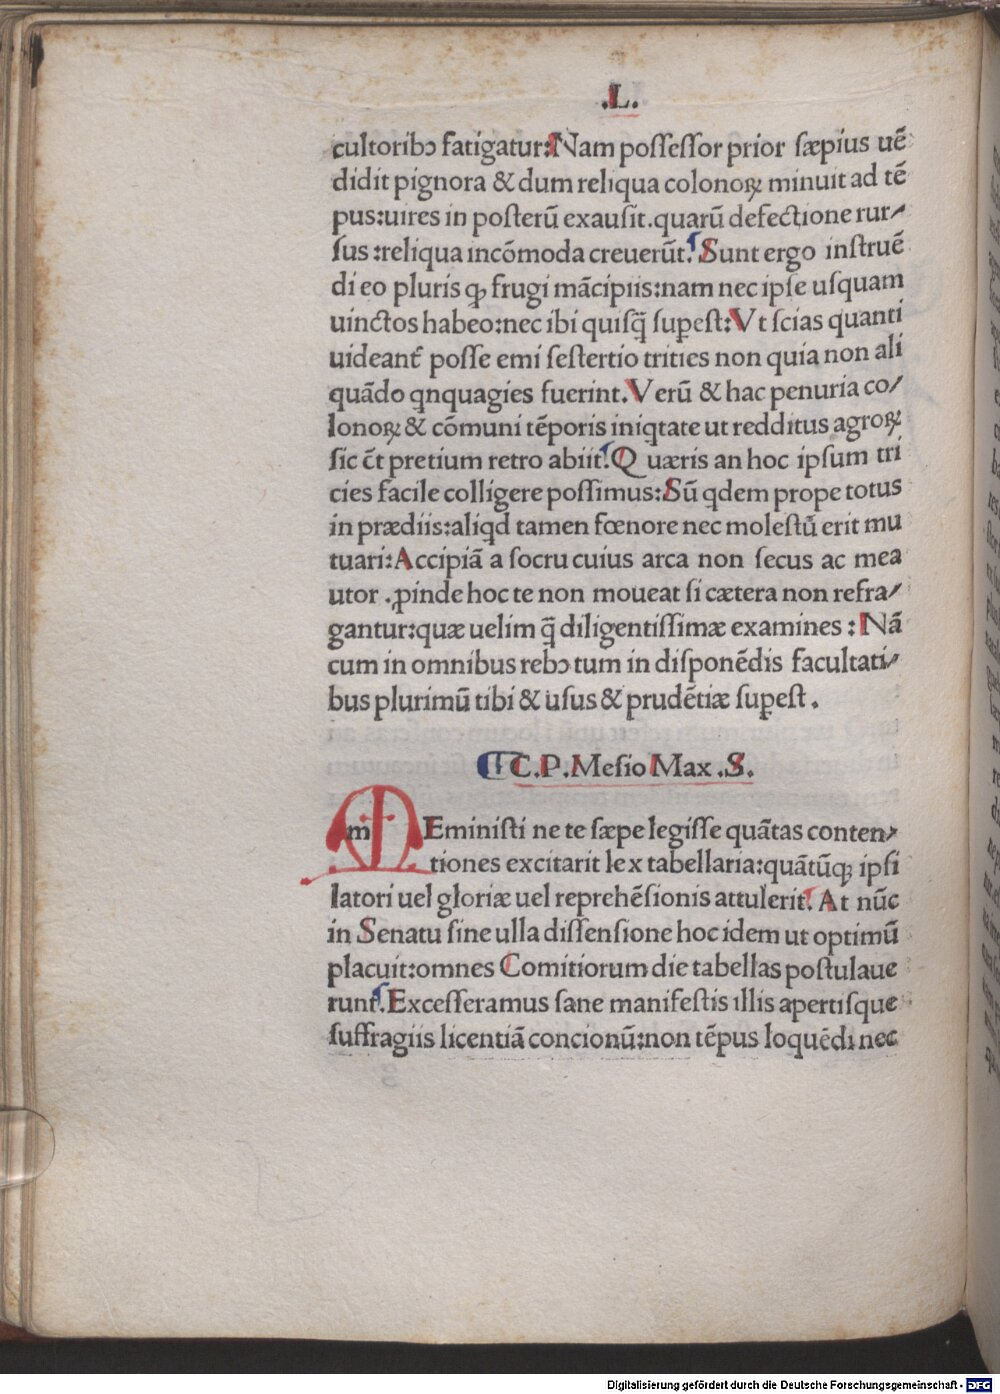 .L.
cultoribꝫ fatigatur:Nam poſſeſſor prior ſæpius uē
didit pignora & dum reliqua colonoꝝ minuit ad tē
pus:uires in poſterū exauſit.quarū defectione rur⸗
ſus:reliqua incōmoda creuerūt.Sunt ergo inſtruē
di eo pluris ꝙ frugi mācipiis:nam nec ipſe uſquam
uinctos habeo:nec ibi quiſq̄ ſuꝑeſt:Vt ſcias quanti
uideant᷑ poſſe emi ſeſtertio trities non quia non ali
quādo qnquagies fuerint.Verū & hac penuria co⸗
lonoꝝ & cōmuni tēporis iniqtate ut redditus agroꝝ
ſic c̄t pretium retro abiit.Quæris an hoc ipſum tri
cies facile colligere poſſimus:Sū qdem prope totus
in prædiis:aliqd tamen fœnore nec moleſtū erit mu
tuari:Accipiā a ſocru cuius arca non ſecus ac mea
utor .ꝓinde hoc te non moueat ſi cætera non refra⸗
gantur:quæ uelim q̄ diligentiſſimæ examines :Nā
cum in omnibus rebꝫ tum in diſponēdis facultati⸗
bus plurimū tibi & uſus & prudētiæ ſuꝑeſt .
C.P.Meſio Max .S.
mEminiſti ne te ſæpe legiſſe quātas conten⸗
tiones excitarit lex tabellaria:quātūꝙ ipſi
latori uel gloriæ uel reprehēſionis attulerit. At nūc
in Senatu ſine ulla diſſenſione hoc idem ut optimū
placuit:omnes Comitiorum die tabellas poſtulaue
runt.Exceſſeramus ſane manifeſtis illis apertiſque
ſuffragiis licentiā concionū:non tēpus loquēdi nec
Digitalisierung gefördert durch die Deutsche Forschungsgemeinschaft - DFG